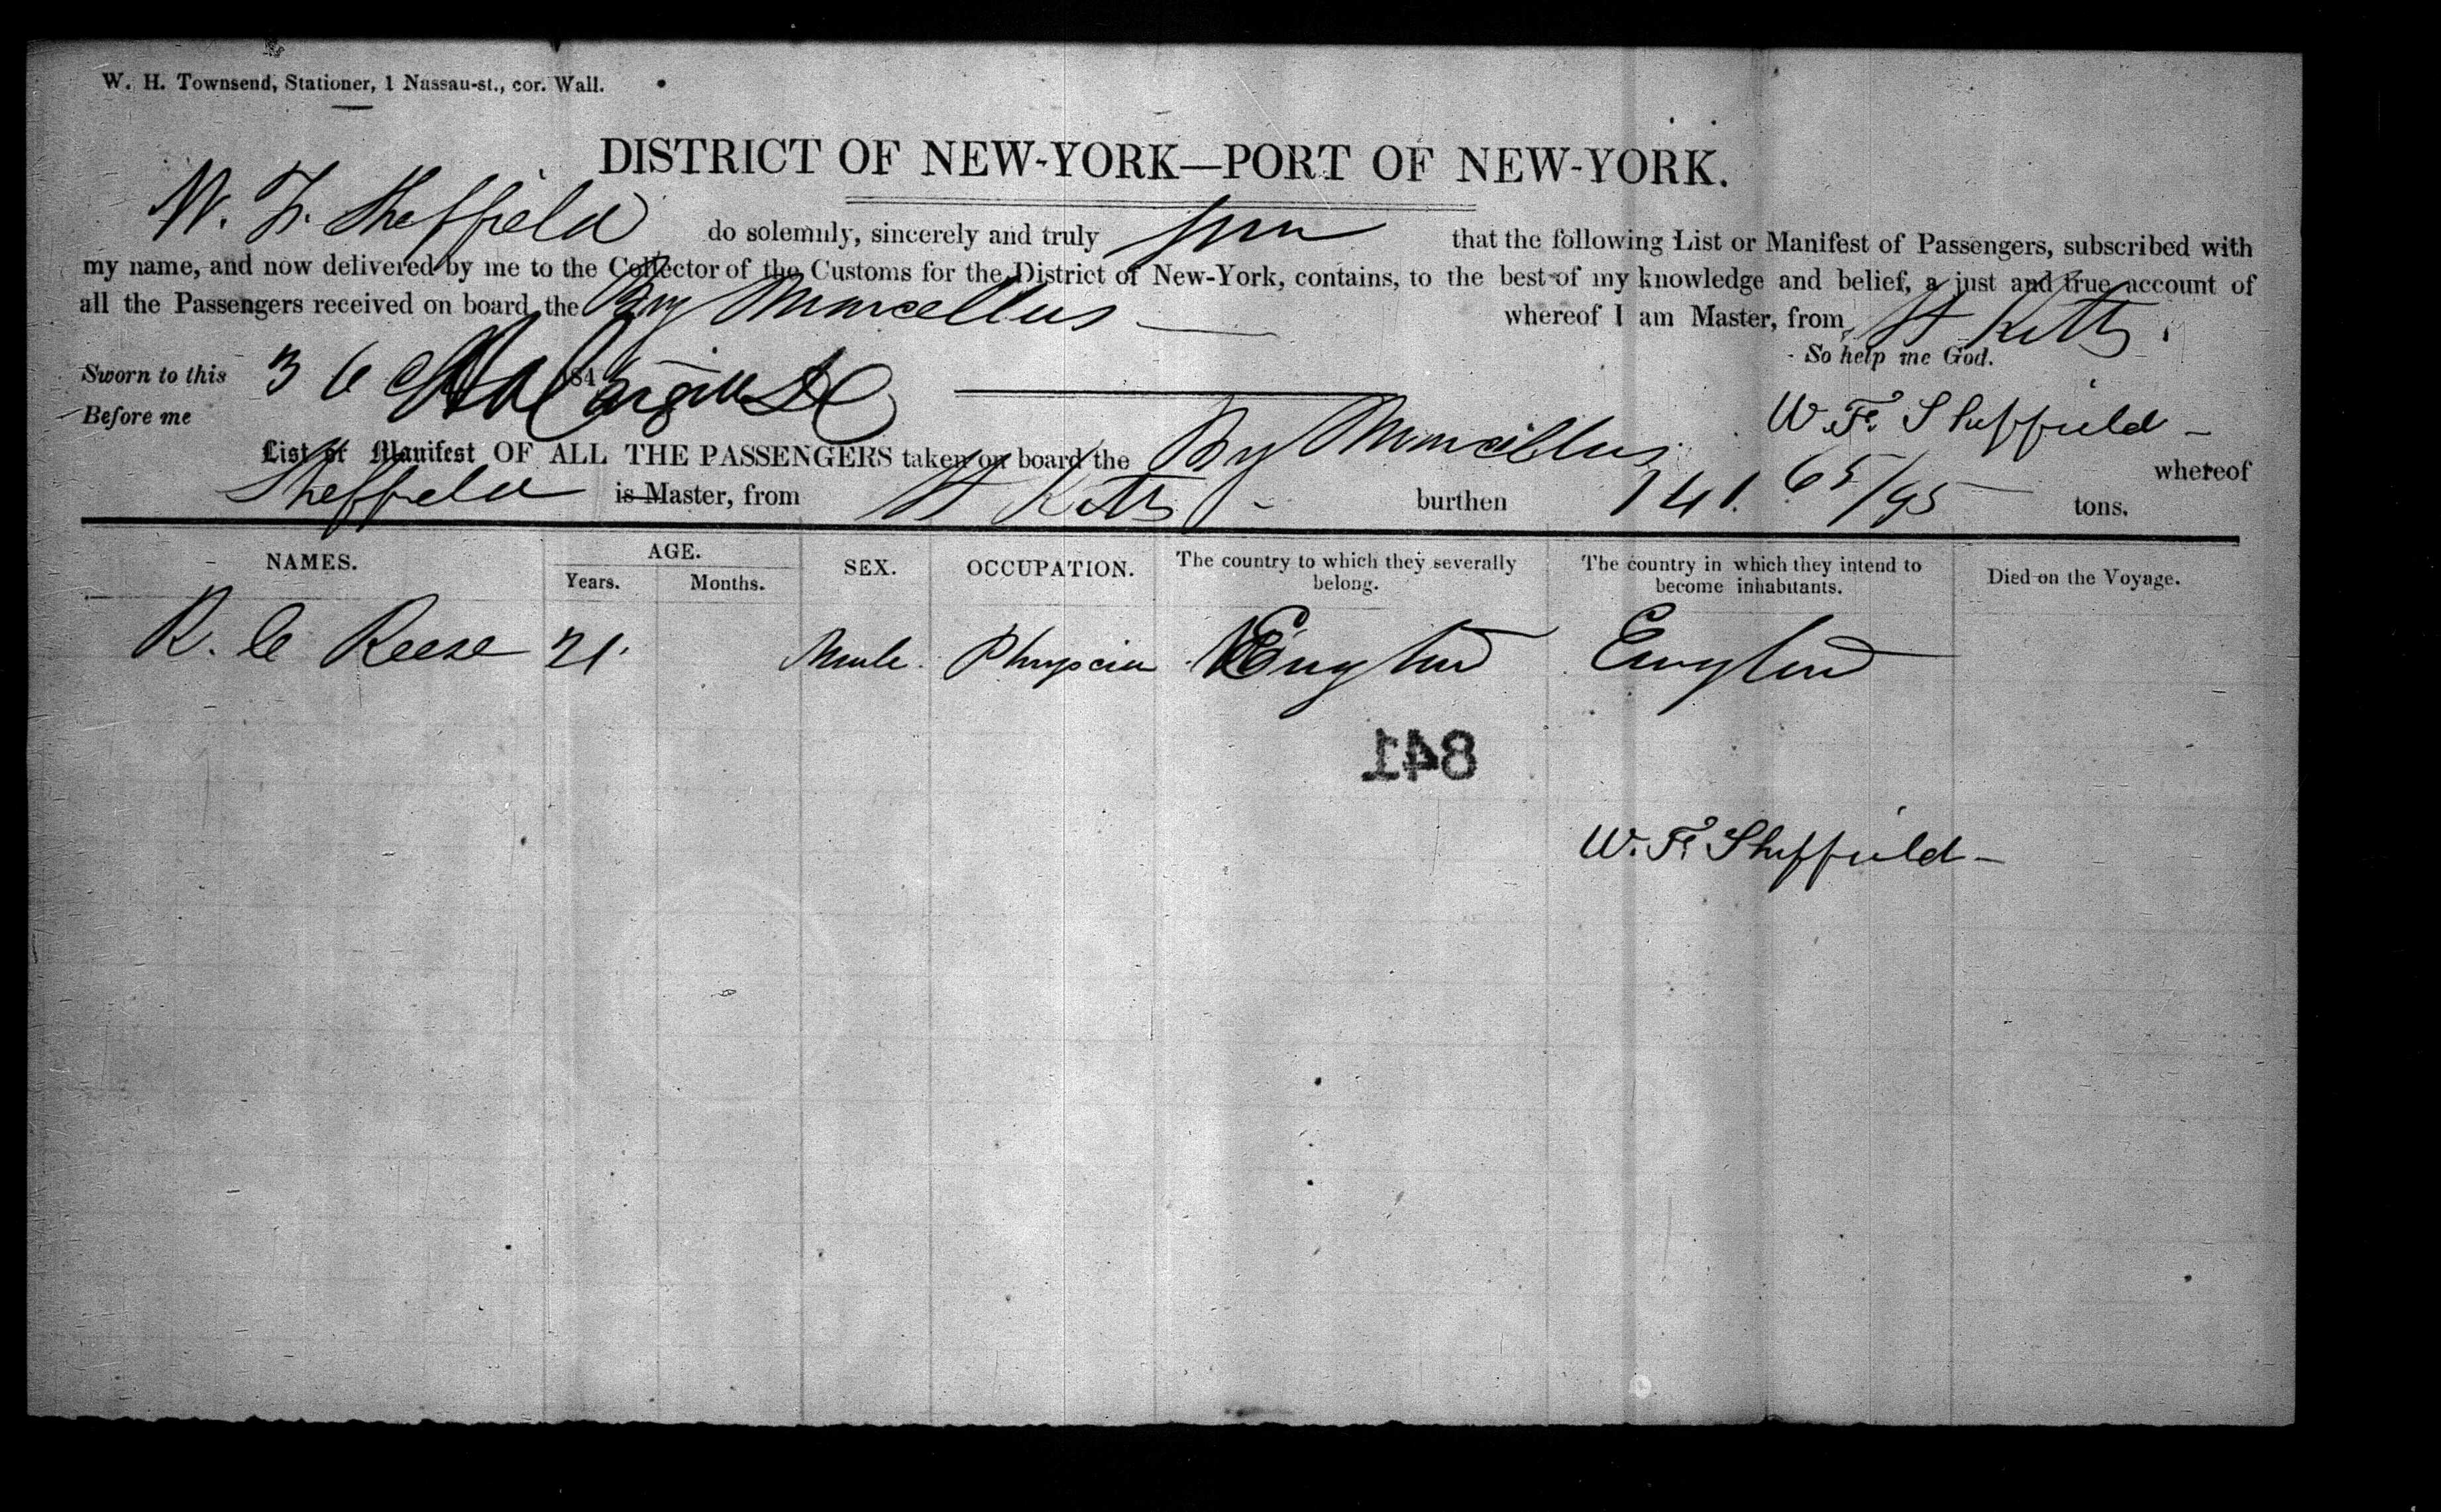 W. H. Townsend, Stationer, 1 Nassau-st., cor. Wall.
DISTRICT OF NEW-YORK—PORT OF NEW-YORK.
W. F. Sheffield do solemnly, sincerely and truly that the following List or Manifest of Passengers, subscribed with
my name, and now delivered by me to the Collector of the Customs for the District of New-York, contains, to the best of my knowledge and belief, a just and true account of
all the Passengers received on board the Brig Marcellus whereof I am Master, from St Kitts.
So help me God.
Sworn to this 184
Before me
W. F. Sheffield
List or Manifest OF ALL THE PASSENGERS taken on board the Brig Marcellus whereof
Sheffield is Master, from St Kitts burthen 141. 65/95 tons.
NAMES. AGE. Years. Months. SEX. OCCUPATION. The country to which they severally belong. The country in which they intend to become inhabitants. Died on the Voyage.
R. C Reese 21. Male. Physician England England
841
W. F. Sheffield